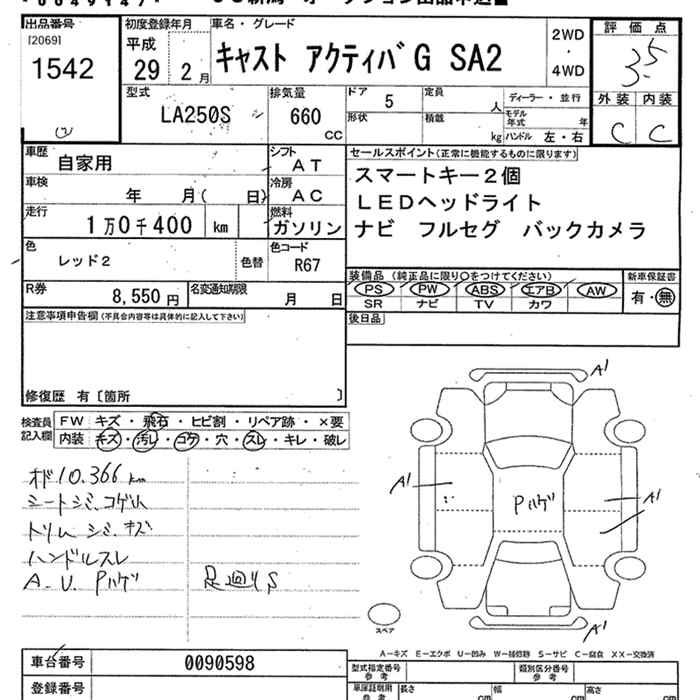 出品番号
[2069]
1542
初度登録年月
平成
29 2月
車名・グレード
キャスト アクティバG SA2
2WD
・
4WD
評価点
3.5
外装 内装
C C
型式
LA250S
排気量
660
CC
ドア 5
定員 人
形状
積載 kg
ディーラー・並行
モデル年式 年
ハンドル 左・右
車歴
自家用
シフト
AT
車検
年 月( 日)
冷房
AC
走行
1万0千400 km
燃料
ガソリン
セールスポイント(正常に機能するものに限ります)
スマートキー2個
LEDヘッドライト
ナビ フルセグ バックカメラ
色
レッド2
色替
色コード
R67
R券
8,550円
名変通知期限
月 日
装備品 (純正品に限り○をつけてください)
PS PW ABS エアB AW
SR ナビ TV カワ
新車保証書
有・無
後日品
注意事項申告欄(不具合内容等は具体的に記入して下さい)
修復歴 有〔箇所 〕
検査員記入欄
FW キズ・飛石・ヒビ割・リペア跡・×要
内装 キズ・汚レ・コゲ・穴・スレ・キレ・破レ
オド10.366km
シートシミ、コゲ小
トリムシミ、キズ
ハンドルスレ
A.U.Pハゲ
足廻りS
A1
A1
Pハゲ
A1
A1
スペア
A−キズ E−エクボ U−凹み W−補修跡 S−サビ C−腐食 XX−交換済
車台番号
0090598
登録番号
型式指定番号
参考
類別区分番号
参考
車庫証明用
参考
長さ cm
幅 cm
高さ cm